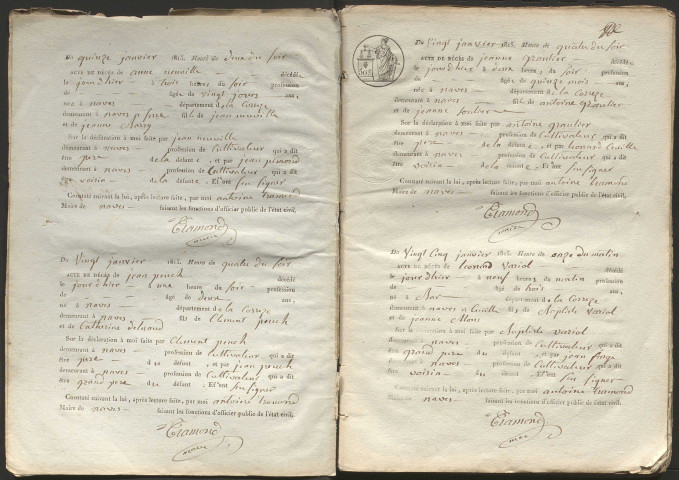 Du quinze janvier 1815. Heure de deux du soir
ACTE DE DÉCÈS de anne neuville décédée
le jour d'hier à trois heures du soir profession
de âgée de vingt jours ans,
née à naves département de la Corrèze
demeurant à naves fille de jean neuville
et de jeanne
Sur la déclaration à moi faite par jean neuville
demeurant à naves profession de Cultivateur qui a dit
être père de la défunte, et par jean
demeurant à naves profession de Cultivateur qui a dit
être voisin de la défunte. Et n'ont su signer
Constaté suivant la loi, après lecture faite, par moi antoine tramond
Maire de naves faisant les fonctions d'officier public de l'état civil.
Tramond
maire
Du Vingt janvier 1815. Heure de quatre du soir
ACTE DE DÉCÈS de jean pouch décédé
le jour d'hier à une heure du soir profession
de âgé de deux ans,
né à naves département de la Corrèze
demeurant à naves fils de Clement pouch
et de Catherine
Sur la déclaration à moi faite par Clement pouch
demeurant à naves profession de Cultivateur qui a dit
être père du défunt, et par jean pouch
demeurant à naves profession de Cultivateur qui a dit
être grand père du défunt. Et n'ont su signer
Constaté suivant la loi, après lecture faite, par moi antoine tramond
Maire de naves faisant les fonctions d'officier public de l'état civil.
Tramond
maire
Du Vingt janvier 1815. Heure de quatre du soir
ACTE DE DÉCÈS de jeanne décédée
le jour d'hier à deux heures du soir profession
de âgée de quinze mois ans,
née à naves département de la Corrèze
demeurant à naves fille de antoine
et de jeanne
Sur la déclaration à moi faite par antoine
demeurant à naves profession de Cultivateur qui a dit
être père de la défunte, et par leonard
demeurant à naves profession de Cultivateur qui a dit
être voisin de la défunte. Et n'ont su signer
Constaté suivant la loi, après lecture faite, par moi antoine tramond
Maire de naves faisant les fonctions d'officier public de l'état civil.
Tramond
maire
Du Vingt Cinq janvier 1815. Heure de onze du matin
ACTE DE DÉCÈS de leonard décédé
le jour d'hier à neuf heures du matin profession
de âgé de trois ans,
né à département de la Corrèze
demeurant à naves fils de
et de jeanne
Sur la déclaration à moi faite par
demeurant à naves profession de Cultivateur qui a dit
être grand père du défunt, et par jean
demeurant à naves profession de Cultivateur qui a dit
être voisin du défunt. Et n'ont su signer
Constaté suivant la loi, après lecture faite, par moi antoine tramond
Maire de naves faisant les fonctions d'officier public de l'état civil.
Tramond
maire